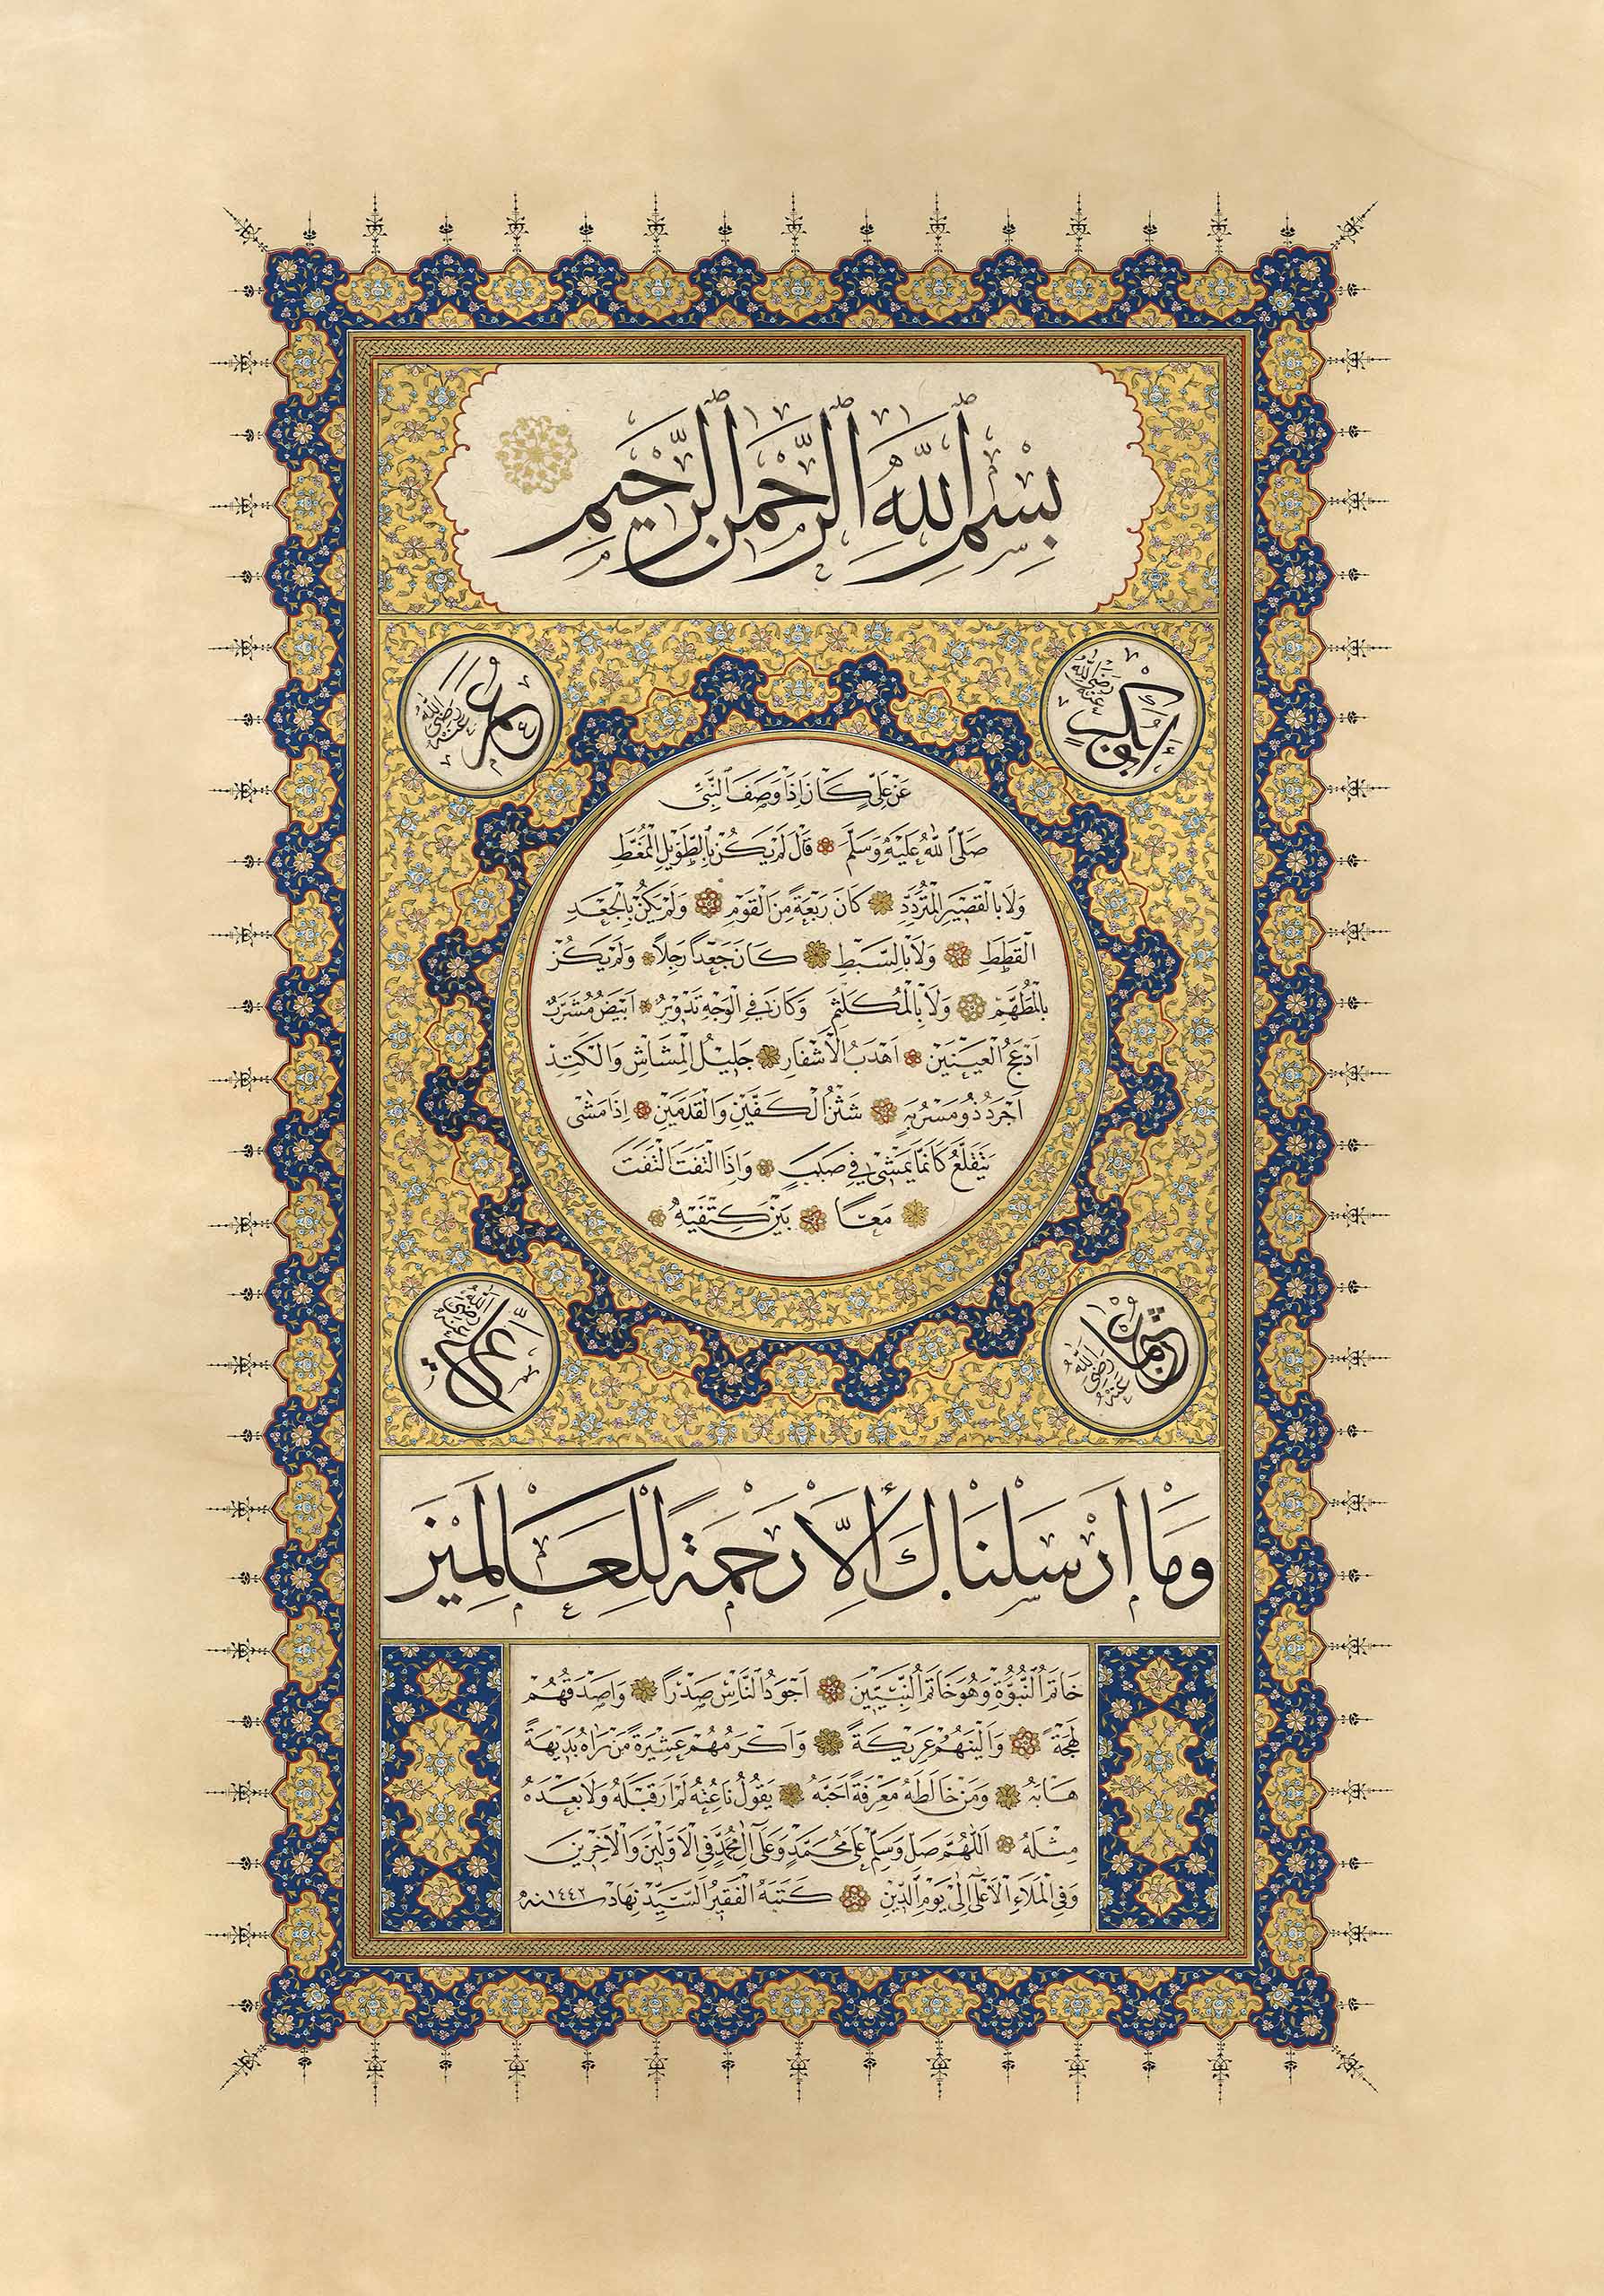 بِسْمِ اللّٰهِ الرَّحْمٰنِ الرَّحِيمِ
ابو بكر رضي الله عنه
عمر رضي الله عنه
عَنْ عَلِيٍّ كَانَ اِذَا وَصَفَ النَّبِيَّ
صَلَّى اللّٰهُ عَلَيْهِ وَسَلَّمَ قَالَ لَمْ يَكُنْ بِالطَّوِيلِ الْمُمَّغِطِ
وَلَا بِالْقَصِيرِ الْمُتَرَدِّدِ كَانَ رَبْعَةً مِنَ الْقَوْمِ وَلَمْ يَكُنْ بِالْجَعْدِ
الْقَطِطِ وَلَا بِالسَّبْطِ كَانَ جَعْدًا رَجِلًا وَلَمْ يَكُنْ
بِالْمُطَهَّمِ وَلَا بِالْمُكَلْثَمِ وَكَانَ فِي الْوَجْهِ تَدْوِيرٌ اَبْيَضُ مُشَرَّبٌ
اَدْعَجُ الْعَيْنَيْنِ اَهْدَبُ الْاَشْفَارِ جَلِيلُ الْمُشَاشِ وَالْكَتَدِ
اَجْرَدُ ذُو مَسْرُبَةٍ شَثْنُ الْكَفَّيْنِ وَالْقَدَمَيْنِ اِذَا مَشٰى
يَتَقَلَّعُ كَاَنَّمَا يَمْشِي فِي صَبَبٍ وَاِذَا الْتَفَتَ الْتَفَتَ
مَعًا بَيْنَ كَتِفَيْهِ
عثمان رضي الله عنه
علي رضي الله عنه
وَمَا اَرْسَلْنَاكَ اِلَّا رَحْمَةً لِلْعَالَمِينَ
خَاتَمُ النُّبُوَّةِ وَهُوَ خَاتَمُ النَّبِيِّينَ اَجْوَدُ النَّاسِ صَدْرًا وَاَصْدَقُهُمْ
لَهْجَةً وَاَلْيَنُهُمْ عَرِيكَةً وَاَكْرَمُهُمْ عَشِيرَةً مَنْ رَاٰهُ بَدِيهَةً
هَابَهُ وَمَنْ خَالَطَهُ مَعْرِفَةً اَحَبَّهُ يَقُولُ نَاعِتُهُ لَمْ اَرَ قَبْلَهُ وَلَا بَعْدَهُ
مِثْلَهُ اَللّٰهُمَّ صَلِّ وَسَلِّمْ عَلٰى مُحَمَّدٍ وَعَلٰى اٰلِ مُحَمَّدٍ فِي الْاَوَّلِينَ وَالْاٰخِرِينَ
وَفِي الْمَلَاءِ الْاَعْلٰى اِلٰى يَوْمِ الدِّينِ كَتَبَهُ الْفَقِيرُ السَّيِّدُ نِهَاد سنه ١٤٤٢